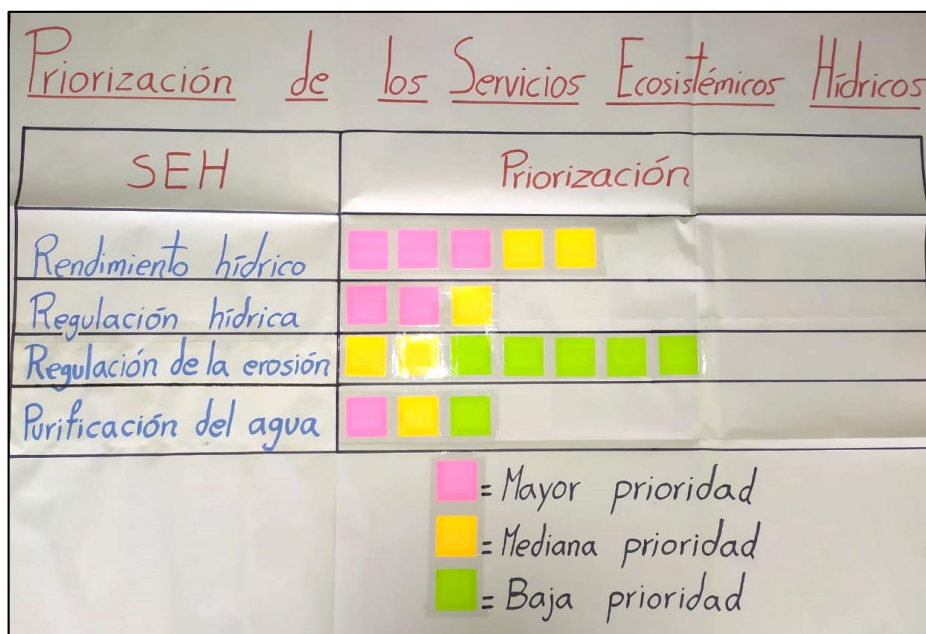 Priorización de los Servicios Ecosistémicos Hídricos
SEH Priorización
Rendimiento hídrico
Regulación hídrica
Regulación de la erosión
Purificación del agua
= Mayor prioridad
= Mediana prioridad
= Baja prioridad